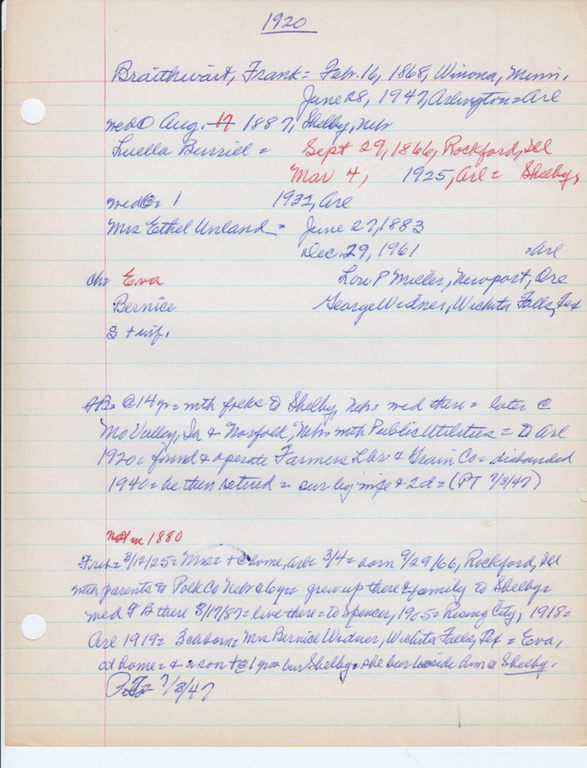 1920
Braithwait, Frank = Feb. 16, 1868, Winona, Minn.
June 28, 1947, Arlington = Arl
med① Aug. 17 1887, Shelby, Neb
Luella Burrill = Sept 29, 1866, Rockford, Ill
Mar 4, 1925, Arl = Shelby,
med②= 1 1932, Arl
Mrs Ethel Unland = June 27, 1883
Dec. 29, 1961 = Arl
ch: Eva Lou P Miller, Newport, Ore
Bernice George Widner, Wichita Falls, Tex
S + inf.
FB= @ 14 yr = with folks to Shelby, Neb = med there = later @
Mo Valley, Ia & Norfolk, Neb = with Public Utilities = to Arl
1920 = found & operate Farmers Lbr & Grain Co = disbanded
1940 = he then retired = sur by wife & 2d = (PT 7/3/47)
Not in 1880
Trib = 3/12/25 = Mrs = + @ home, Arl = 3/4 = born 9/29/66, Rockford, Ill
with parents to Polk Co Neb @ 6 yr = grew up there = family to Shelby =
med FB there 8/17/87 = live there = to Spencer, 1905 = Rising City, 1918 =
Arl 1919 = 3 ch born = Mrs Bernice Widner, Wichita Falls, Tex = Eva,
at home = & a son + @ 1 yr = bur Shelby = she bur beside him @ Shelby.
P.T. = 7/3/47